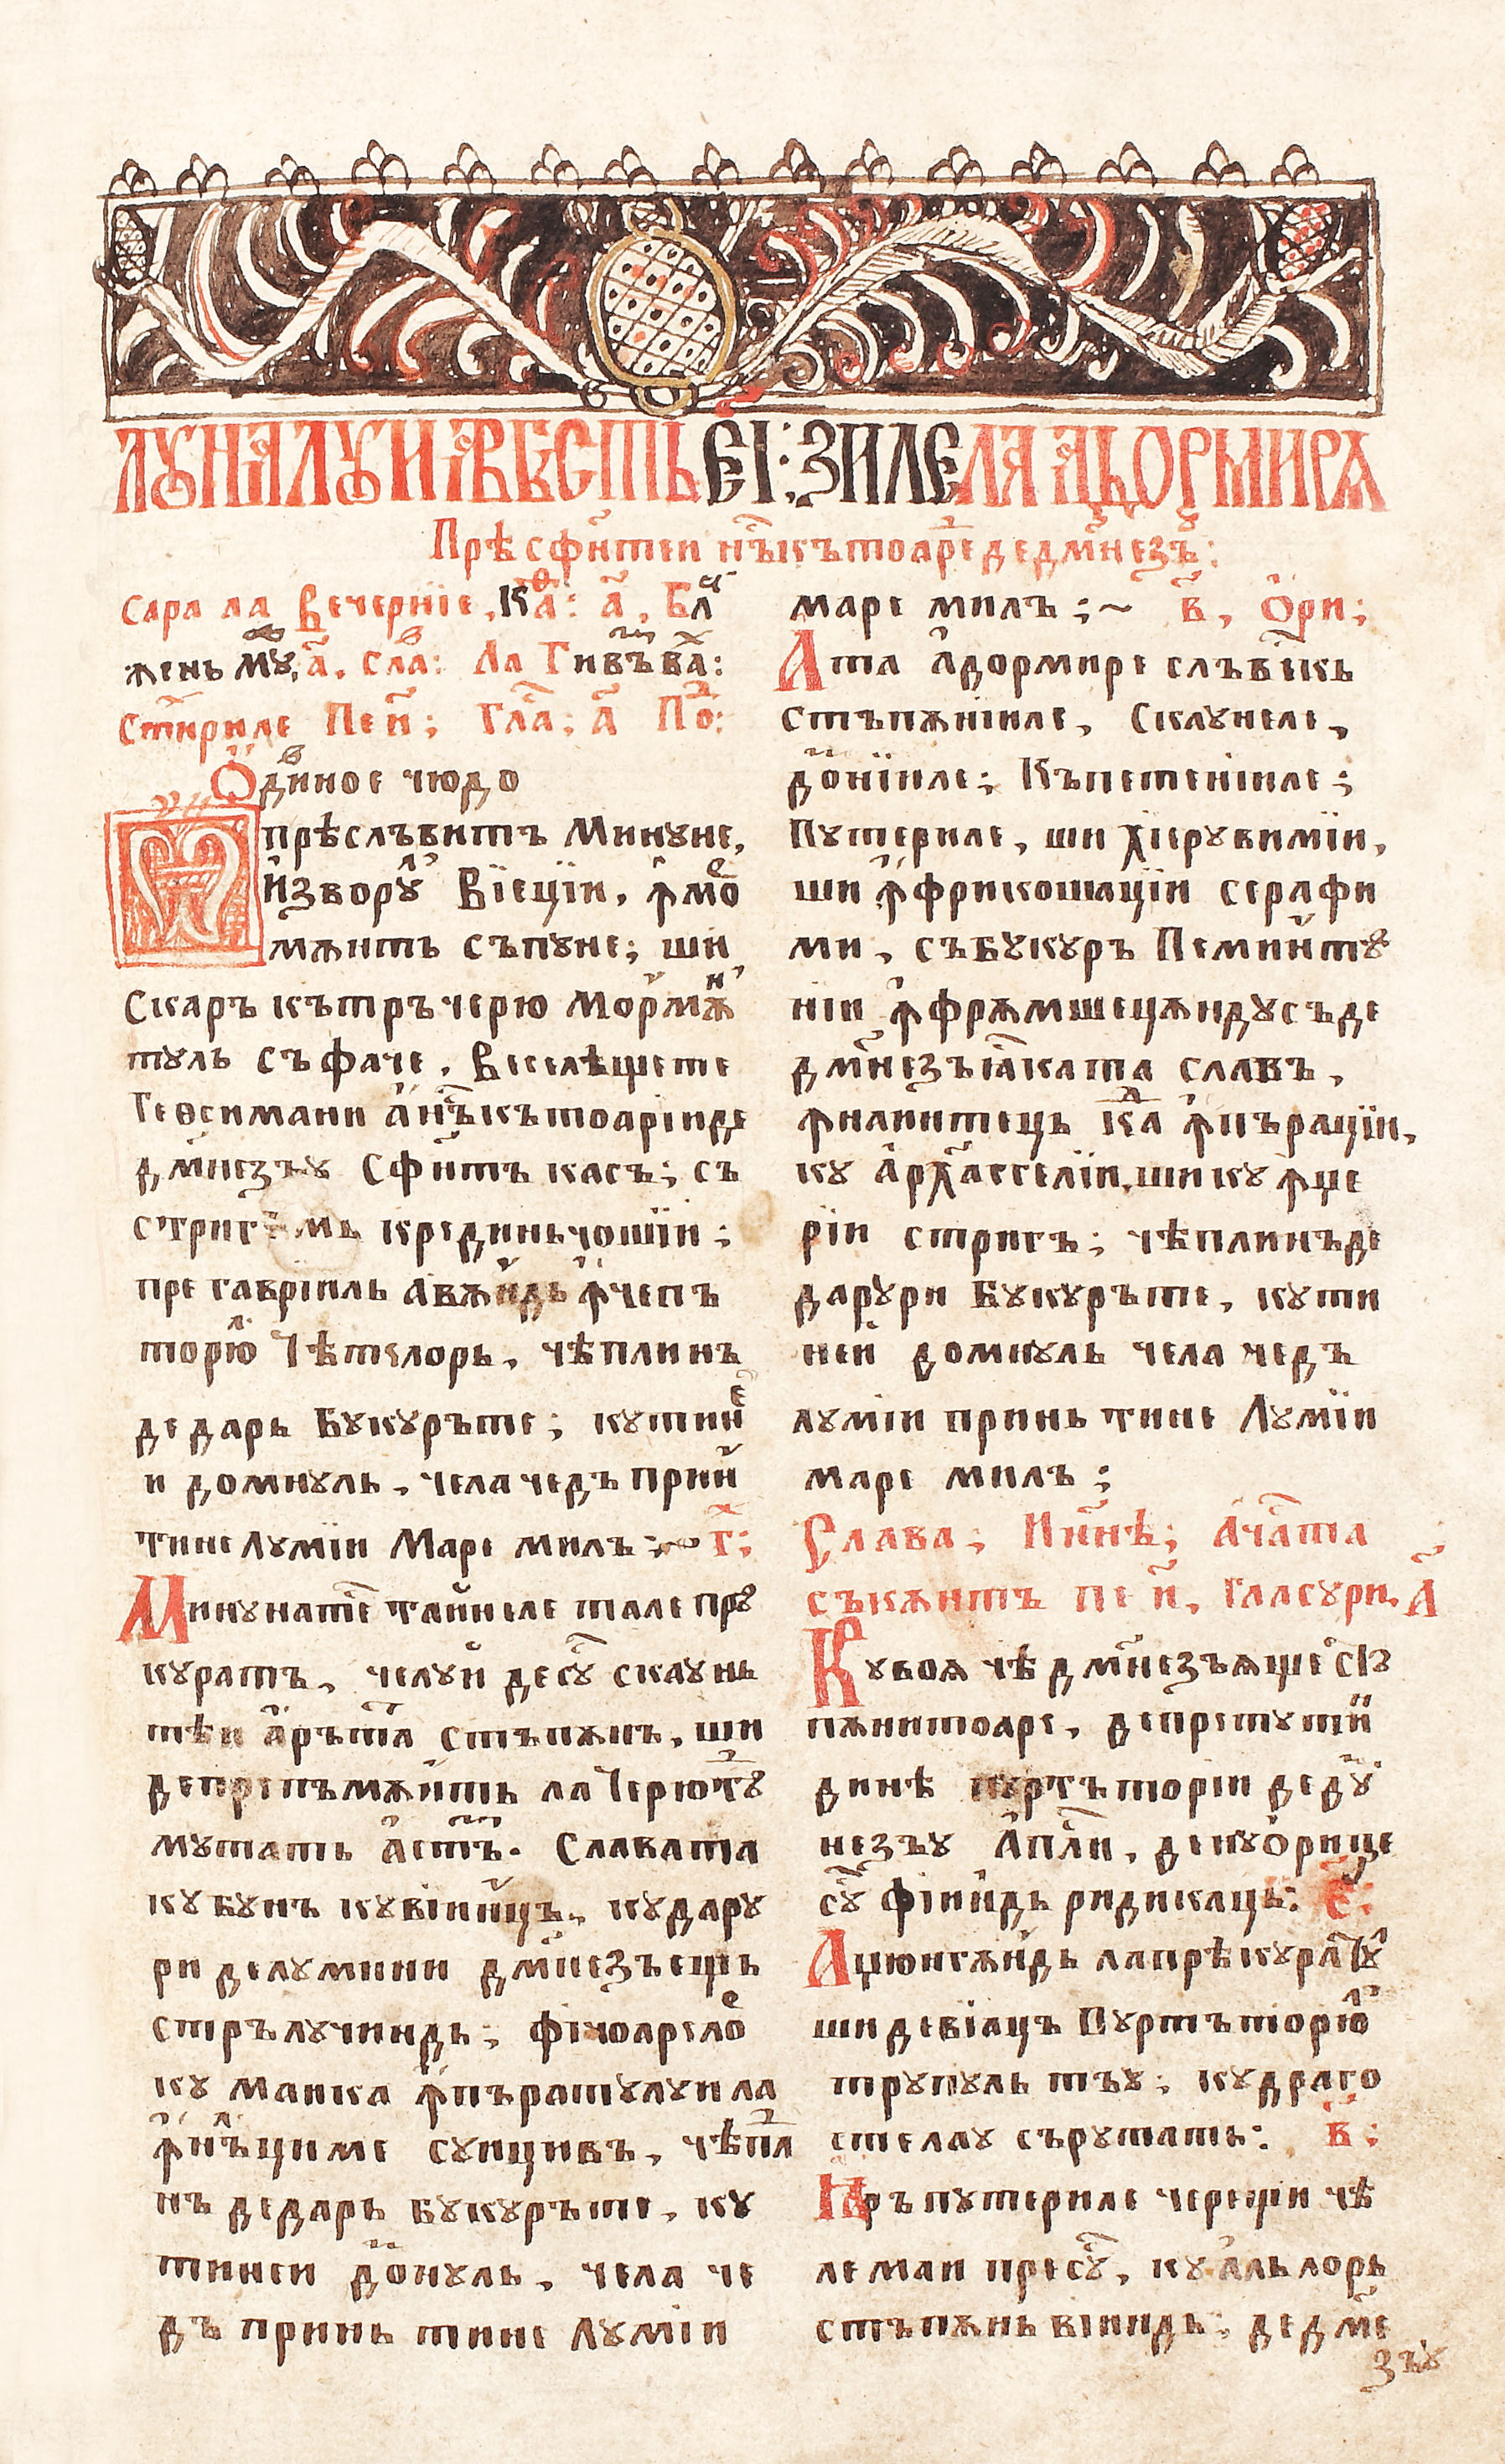 ЛꙊНА ЛꙊИ АВГꙊСТЪ ЕІ: ЗИЛЕ ЛА АДОРМИРѢ
Прѣсфинтеи нъскътоаре де дмнезъꙋ:
сара ла Вечерніе, Каѳ: а, Бл҃
жень мꙋ, а, сла: Ла Гивъва:
Стириле Пеи; Гла; а По:
Одивное чюдо
Ѡ прѣслъвитъ Минꙋне,
изворꙋл Вїецїи, ꙟмо
мѫнтъ съпꙋне; ши
Скаръ кътръ черю Морм꙽ѫн
тꙋль съфаче, Веселѣщете
Геѳсимани а нъскътоаріи де
дмнезъꙋ Сфинтъ касъ; съ
стригъмь крединьчошїи;
пре гавріиль авѫндь ꙟчепъ
торюл Четелорь, чѣплинъ
дедарь Бꙋкꙋръте; кꙋтине
и домнꙋль, чела чедъ прин
тине Лꙋмїи Маре милъ:~ г:
Минꙋнате тайнеле тале прѣ
кꙋратъ, челꙋи десꙋс скаꙋнь
тѣи аръта стъпѫнъ, ши
депрепъмѫнть ла Черютѣ
мꙋтать астъ. Славата
кꙋбꙋнъ кꙋвіинцъ, кꙋдарꙋ
ри делꙋмини дмнезъещь
стрълꙋчиндь; фічоареле
кꙋ маика ꙟпъратꙋлꙋи ла
ꙟнълциме сꙋицивъ, чѣпли
нъ дедарь бꙋкꙋръте, кꙋ
тинеи домнꙋль, чела че
дъ принь тине Лꙋмїи
маре милъ;~ в, Ѻри;
Ата адормире слъвескь
стъпѫніиле, скаꙋнеле,
домнїиле; Къпетеніиле;
Пꙋтериле, ши хіерꙋвимїи,
ши ꙟфрикошацїи серафи
ми, събꙋкꙋръ Пеминтѣ
ніи ꙟфрꙋмшецѫндꙋсъде
дмнезъіаската славъ,
ꙟнаинтець кад ꙟпърацїи,
кꙋ архаггелїи, ши кꙋ ꙟџе
рїи стригъ; чѣплинъде
дарꙋри Бꙋкꙋръте, кꙋти
неи домнꙋль чела чедъ
лꙋміи принь тине Лꙋмїи
маре милъ;
Слава; Ининѣ; Ачаста
съкѫнтъ пе и, гласꙋри, А
Кꙋвоѧ чѣ дмнезъѧще сти
пѫнитоаре, депретꙋтин
динѣ пꙋртъторіи дедꙋ
незъꙋ Апли, денꙋорице
сꙋс фіиндь ридикаць: е:
Аџюнгѫндь лапрѣкꙋратꙋ
ши девіацъ Пꙋртъторюл
трꙋпꙋль тъꙋ; кꙋ драго
стелаꙋ сърꙋтать: в:
Іаръ пꙋтериле черещи чѣ
ле маи пресꙋс, кꙋ аль лорь
стъпѫнь віиндь; дедмне
зъꙋ